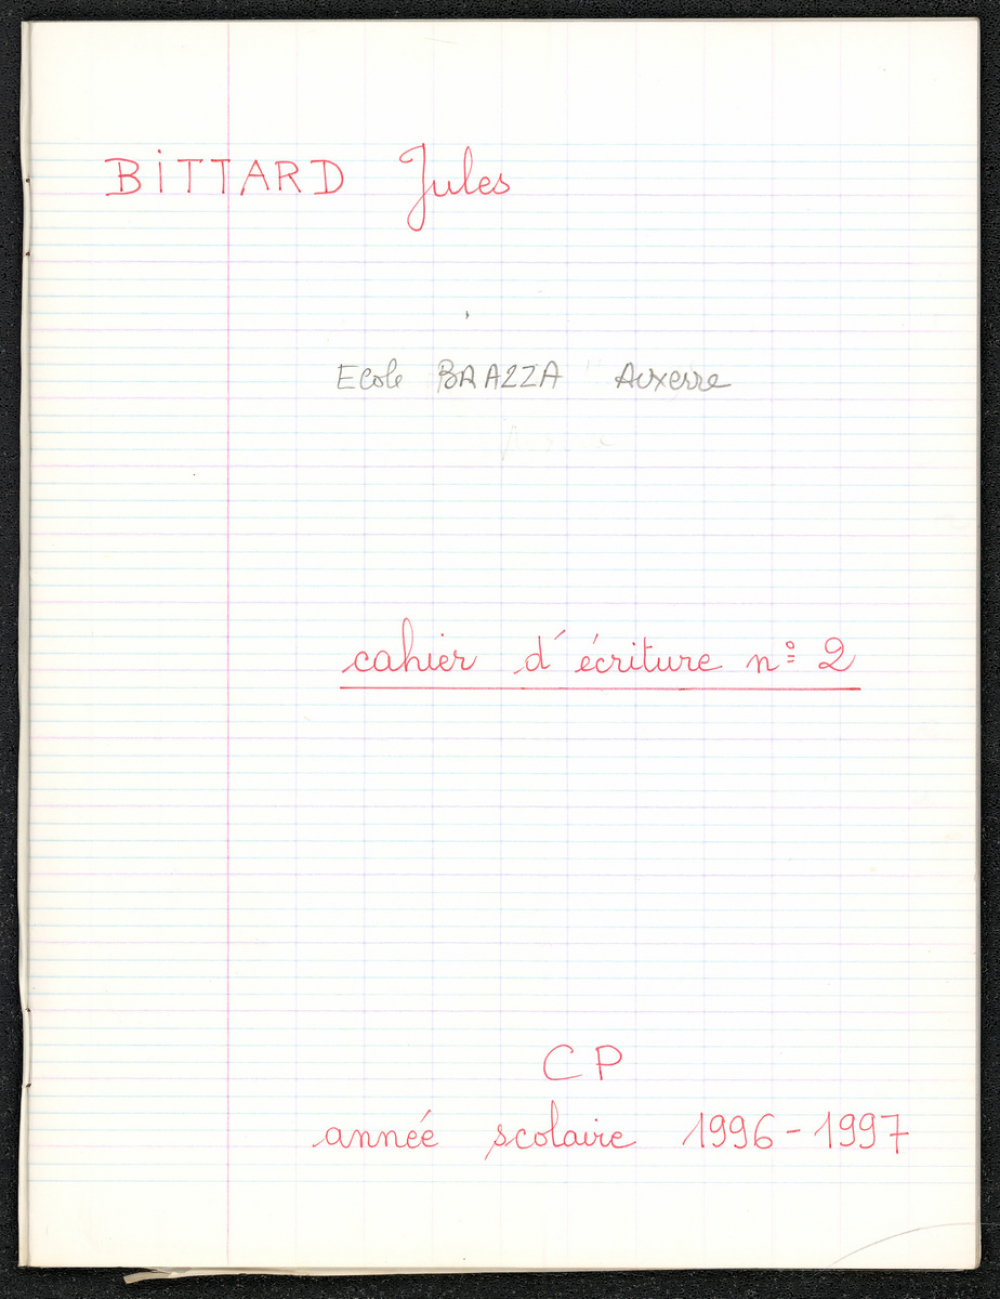 BiTTARD Jules
Ecole BRAZZA Auxerre
cahier d'écriture n° 2
CP
année scolaire 1996-1997